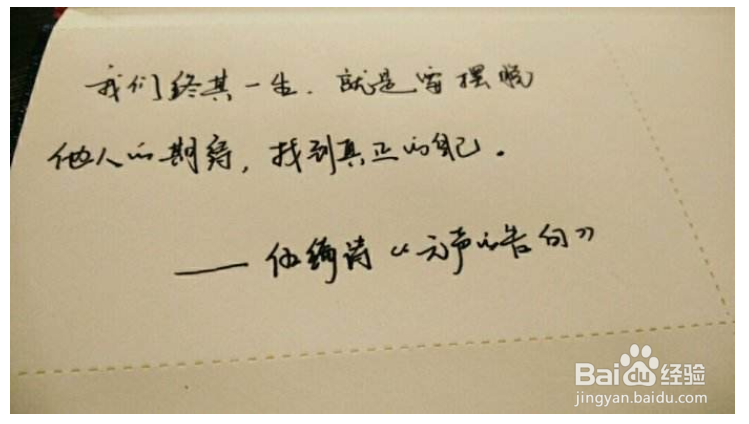 我们终其一生，就是要摆脱
他人的期待，找到真正的自己。
——伍绮诗《无声的告白》
Baidu经验
jingyan.baidu.com